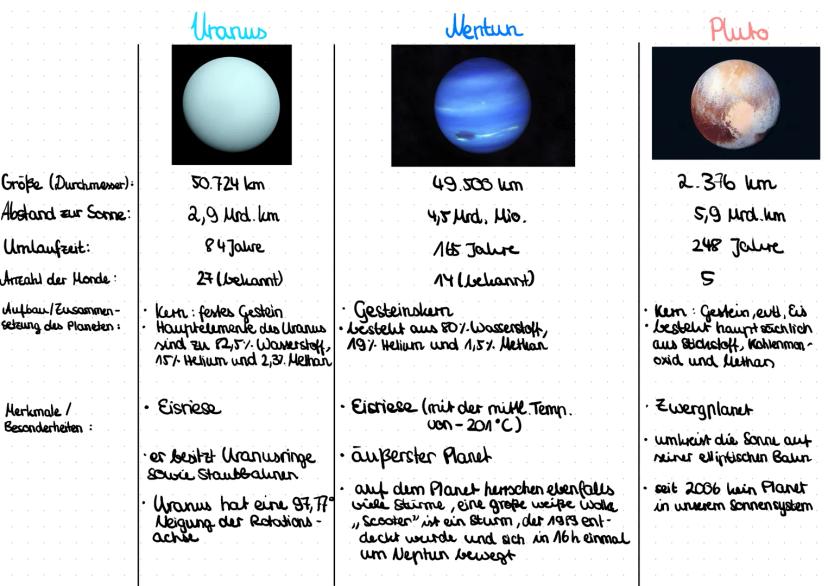 Uranus Neptun Pluto
Größe (Durchmesser): 50.724 km 49.500 km 2.376 km
Abstand zur Sonne: 2,9 Mrd. km 4,5 Mrd. Mio. 5,9 Mrd. km
Umlaufzeit: 84 Jahre 165 Jahre 248 Jahre
Anzahl der Monde: 27 (bekannt) 14 (bekannt) 5
Aufbau/Zusammen-
setzung des Planeten:
· Kern: festes Gestein
· Hauptelemente des Uranus
sind zu 82,5% Wasserstoff,
15% Helium und 2,3% Methan
· Gesteinskern
· besteht aus 80% Wasserstoff,
19% Helium und 1,5% Methan
· Kern: Gestein, evtl. Eis
· besteht hauptsächlich
aus Stickstoff, Kohlenmon-
oxid und Methan
Merkmale /
Besonderheiten:
· Eisriese
· er besitzt Uranusringe
sowie Staubbahnen
· Uranus hat eine 97,77°
Neigung der Rotations-
achse
· Eisriese (mit der mittl. Temp.
von -201°C)
· äußerster Planet
· auf dem Planet herrschen ebenfalls
viele Stürme, eine große weiße Wolke
„Scooter" ist ein Sturm, der 1989 ent-
deckt wurde und sich in 16h einmal
um Neptun bewegt
· Zwergplanet
· umkreist die Sonne auf
seiner elliptischen Bahn
· seit 2006 kein Planet
in unserem Sonnensystem